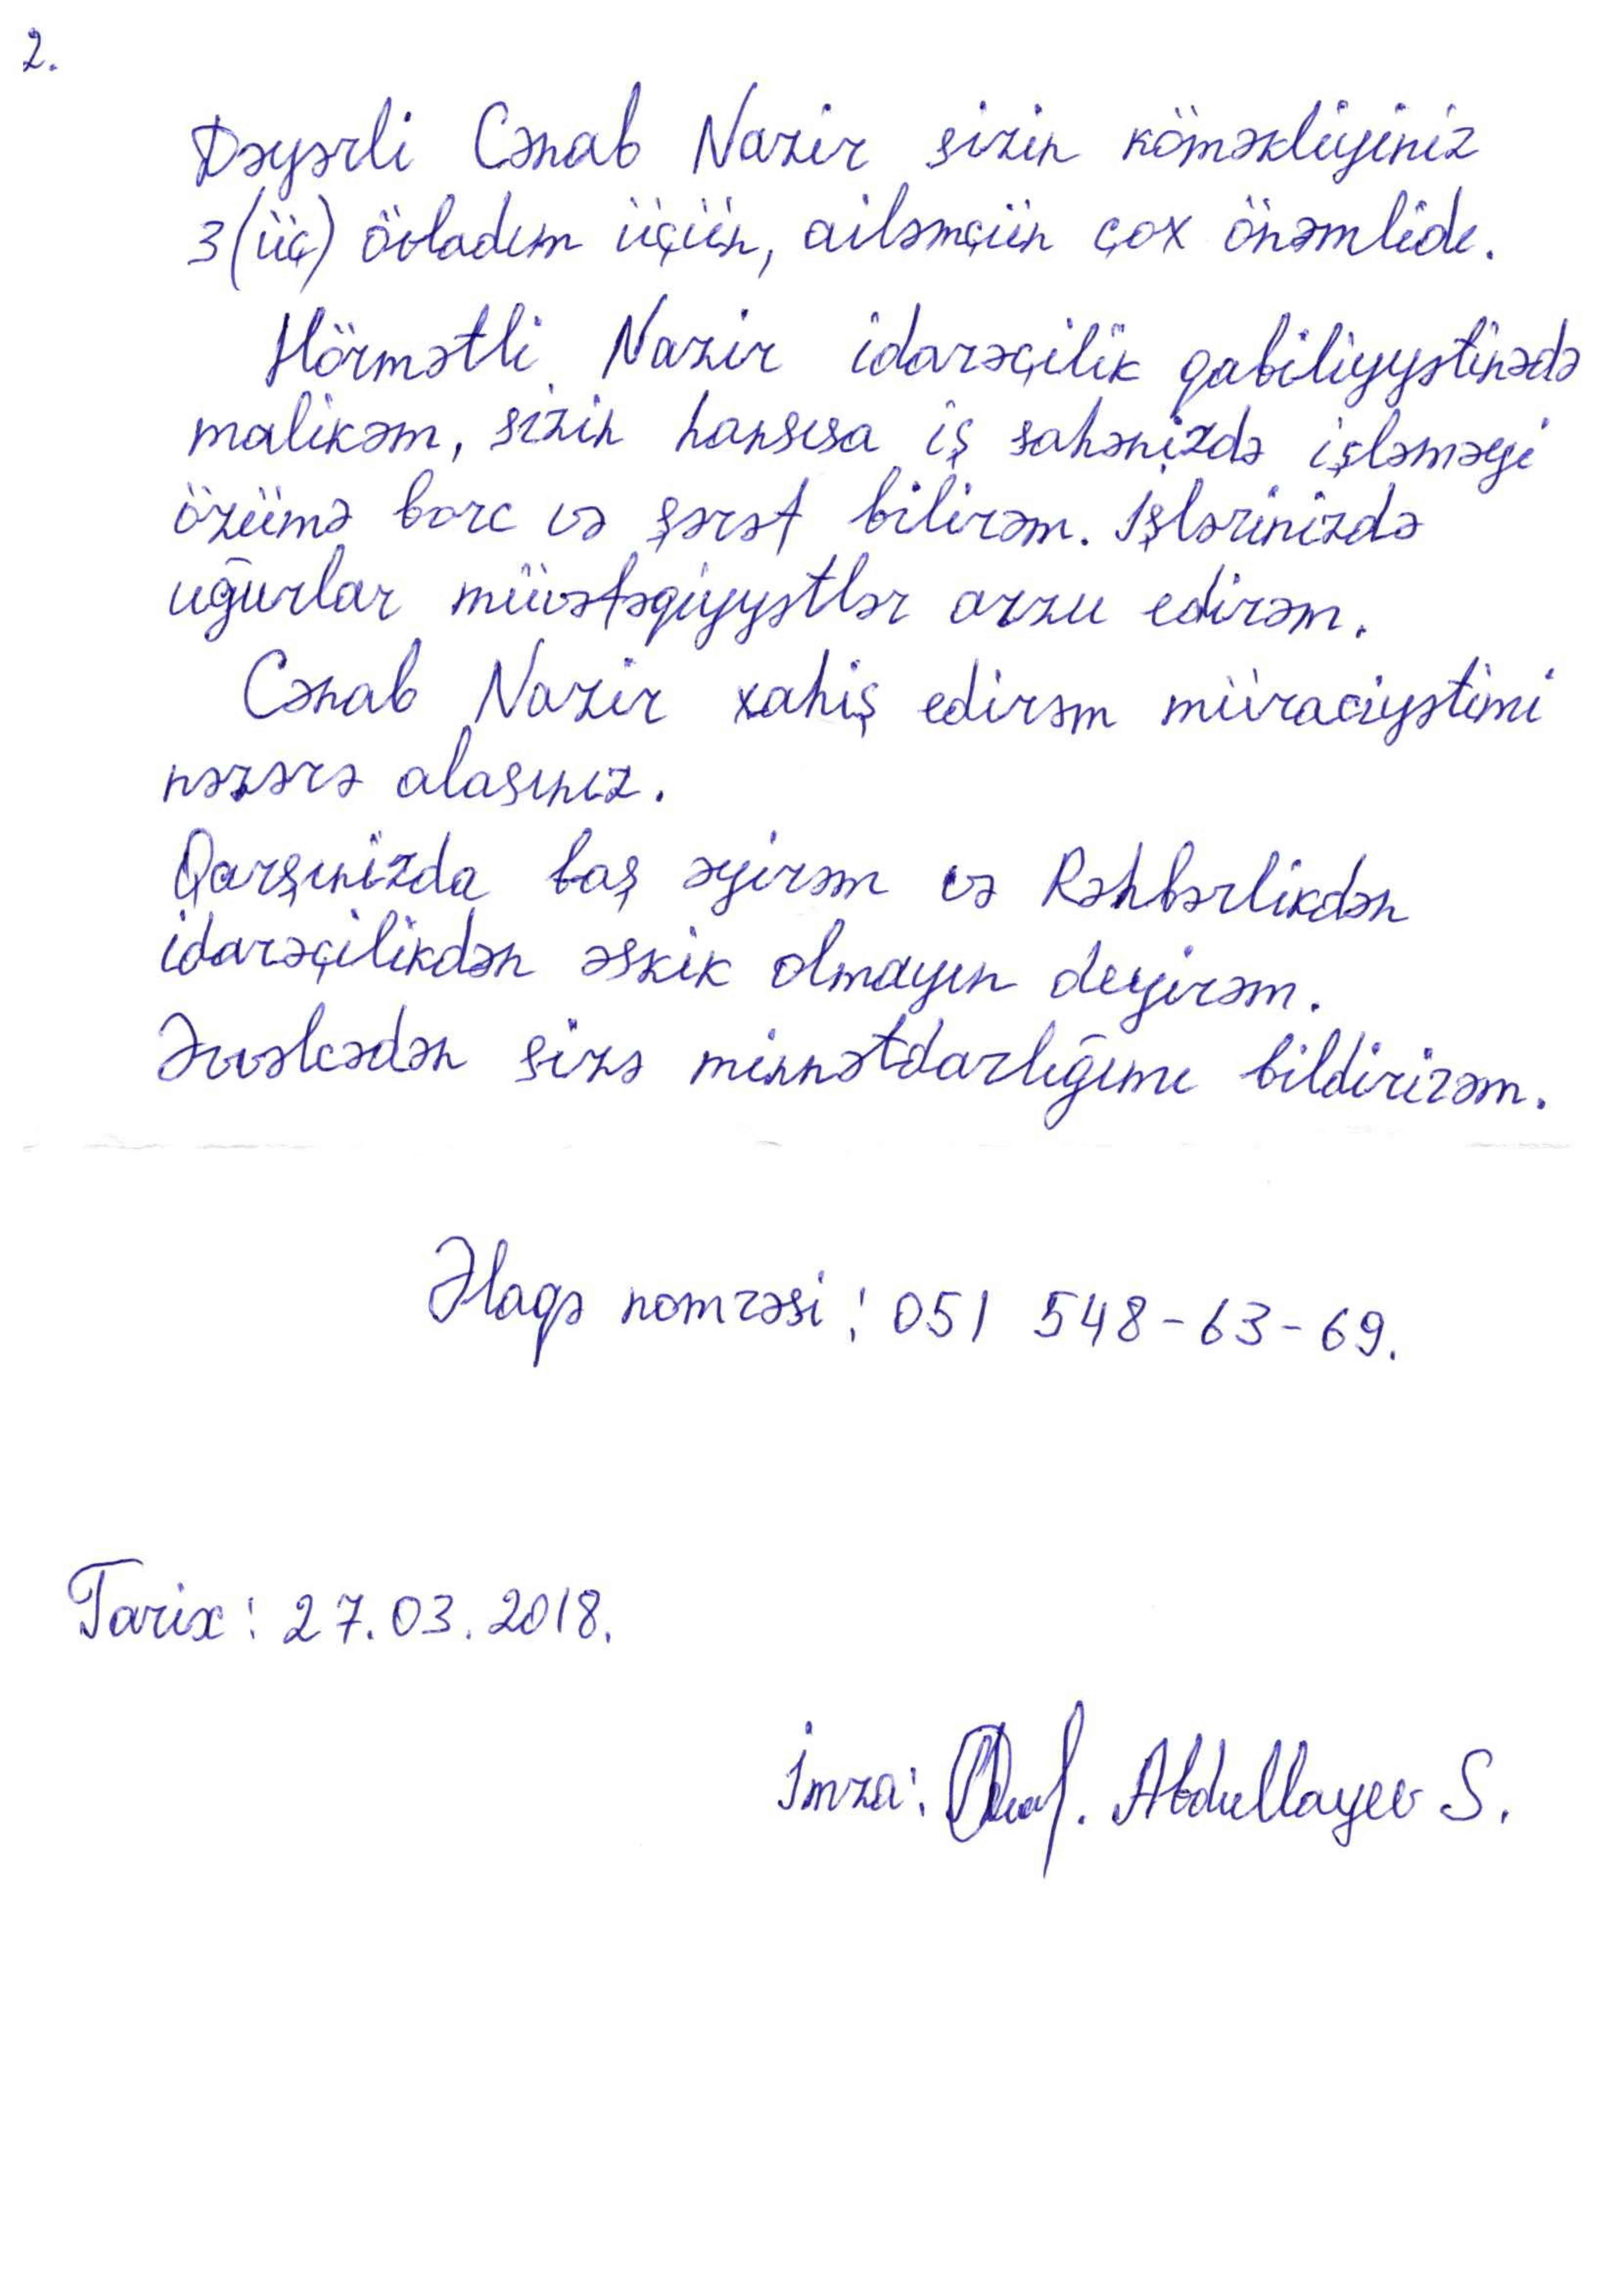 2.
Dəyərli Cənab Nazir sizin köməkliyiniz
3(üç) övladım üçün, ailəmçün çox önəmlidi.
Hörmətli Nazir idarəçilik qabiliyyətinədə
malikəm, sizin hansısa iş sahənizdə işləməyi
özümə borc və şərəf bilirəm. Işlərinizdə
uğurlar müvəfəqiyyətlər arzu edirəm.
Cənab Nazir xahiş edirəm müraciyətimi
nəzərə alasınız.
Qarşınizda baş əyirəm və Rəhbərlikdən
idarəçilikdən əskik olmayın deyirəm.
Əvvəlcədən sizə minnətdarlığımı bildirirəm.
Əlaqə nomrəsi: 051 548-63-69.
Tarix: 27.03.2018.
İmza: Abdullayev S.